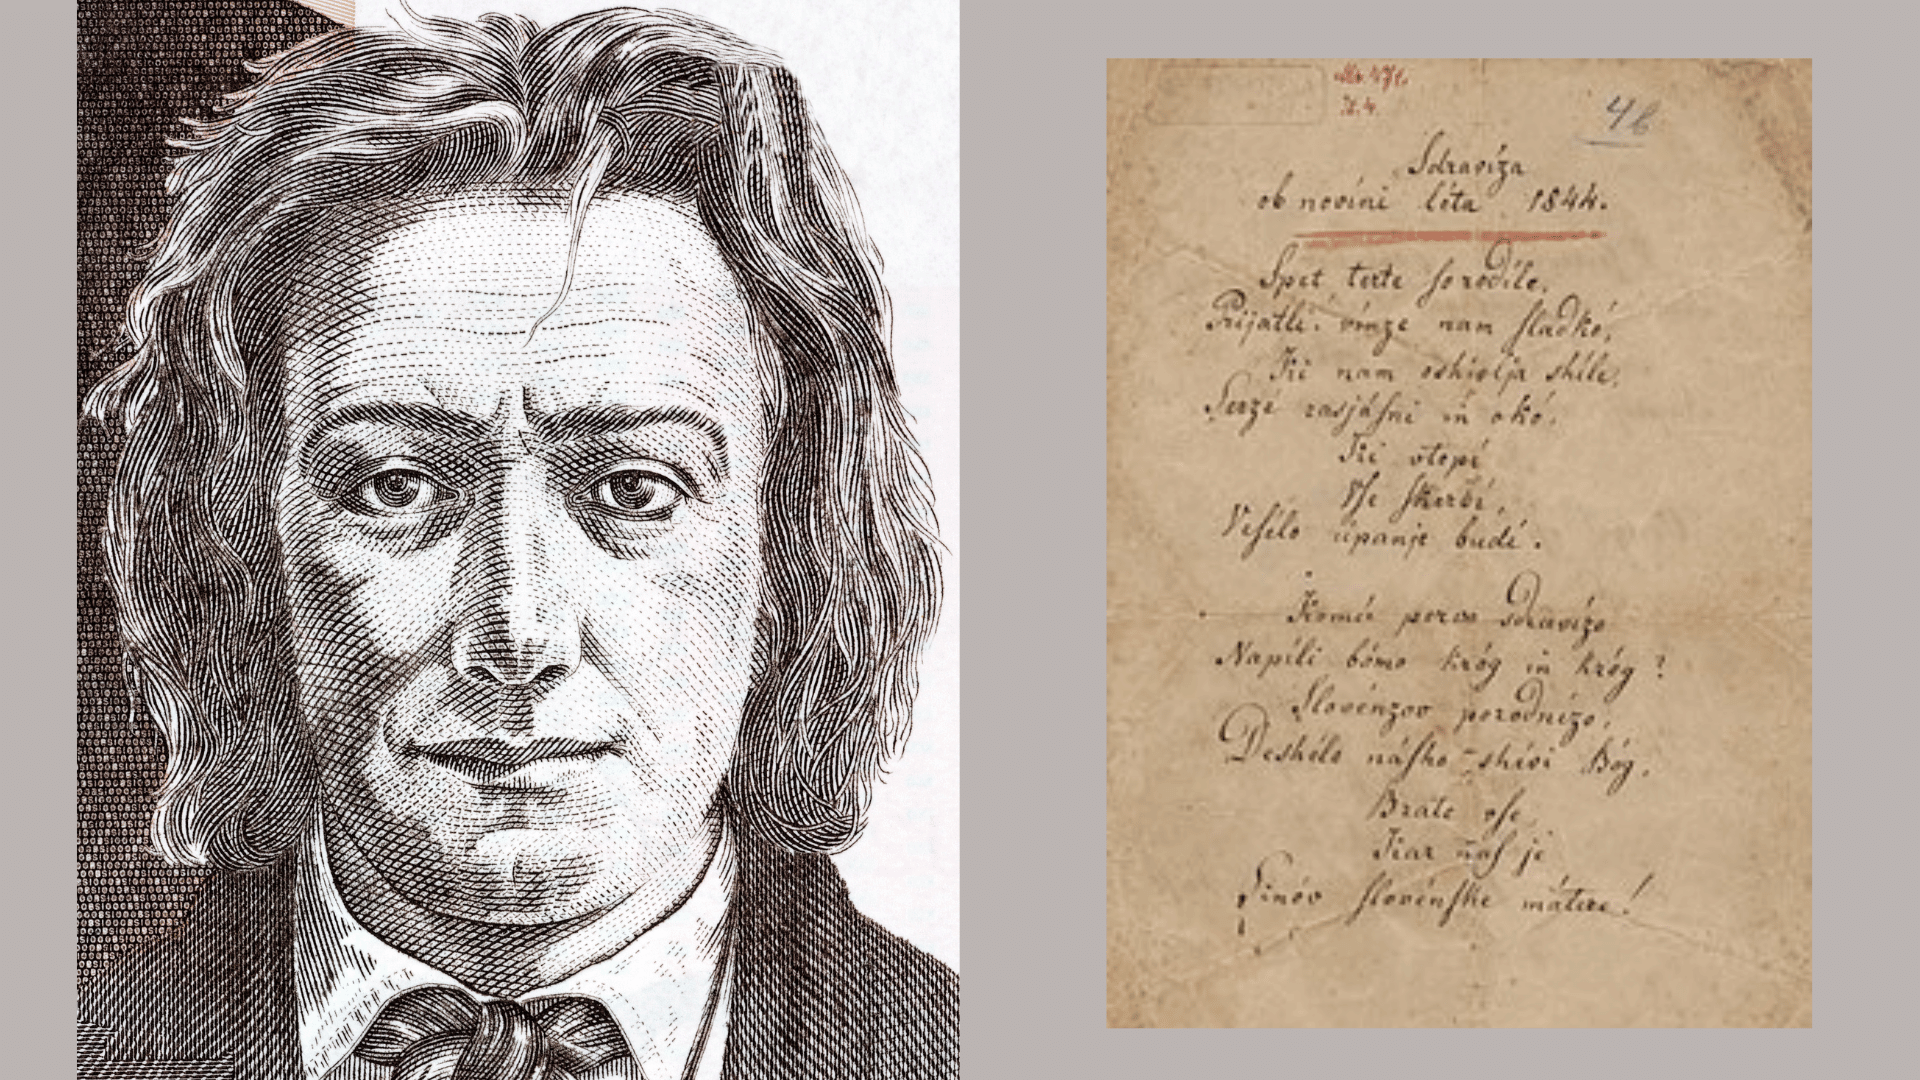 46
Sdravíza
ob novíni léta 1844.
Spet terte ſo rodíle,
Prijatli! vínze nam ſladkó,
Ki nam oshivlja shíle,
Serzé rasjáſni in okó.
Ki vtopí
Vſe ſkerbí,
Veſélo úpanje budí.
Komú pervo sdravízo
Napíli bómo króg in króg?
Slovénzov porodnízo,
Deshélo náſho shívi Bóg,
Brate vſe,
Kar naſ je
Sinóv ſlovénſke mátere!